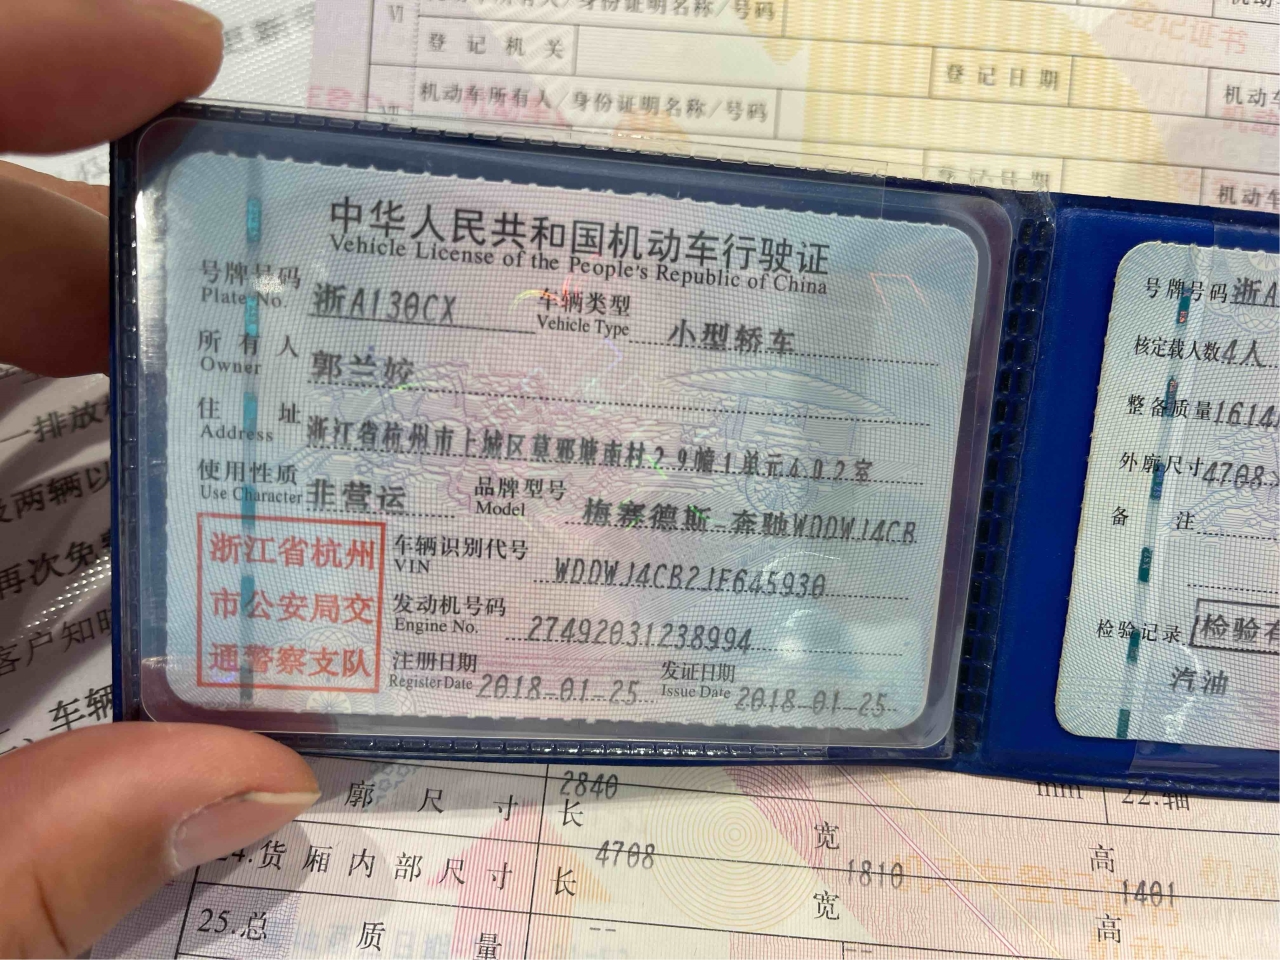 机动车所有人/身份证明名称/号码
登记机关
登记日期
机动车所有人/身份证明名称/号码
中华人民共和国机动车行驶证
Vehicle License of the People's Republic of China
号牌号码 浙A130CX 车辆类型 小型轿车
Plate No. Vehicle Type
所有人 郭兰姣
Owner
住址 浙江省杭州市上城区莫邪塘南村29幢1单元402室
Address
使用性质 非营运 品牌型号 梅赛德斯-奔驰WDDWJ4CB
Use Character Model
浙江省杭州
市公安局交
通警察支队
车辆识别代号 WDDWJ4CB2JF645930
VIN
发动机号码 27492031238994
Engine No.
注册日期 2018-01-25 发证日期 2018-01-25
Register Date Issue Date
号牌号码 浙A
核定载人数 4人
整备质量 1614
外廓尺寸 4708
备注
检验记录 检验有
汽油
廓尺寸 长 2840 宽 高 mm 22.轴
货厢内部尺寸 长 4708 宽 1810 高 1401
25.总质量 --